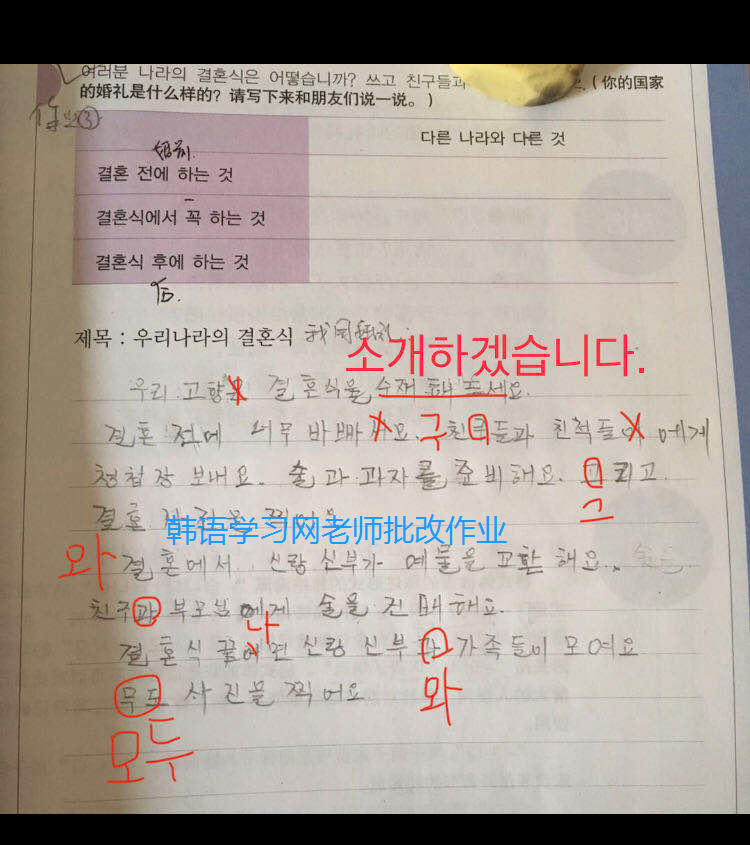 여러분 나라의 결혼식은 어떻습니까? 쓰고 친구들과 (你的国家
的婚礼是什么样的? 请写下来和朋友们说一说。)
다른 나라와 다른 것
결혼 전에 하는 것
결혼식에서 꼭 하는 것
결혼식 후에 하는 것
后.
제목 : 우리나라의 결혼식
소개하겠습니다.
우리 고향 결혼식을 해 주세요.
결혼 전에 너무 바빠 요. 구 친 들과 친척들 에게
청첩장 보내요. 술과 과자를 준비해요. 그리고
그
결혼 찍어요
韩语学习网老师批改作业
와 결혼에서 신랑 신부가 예물을 교환해요.
친구과 부모님에게 술을 건배해요.
나
결혼식 끝 면 신랑 신부과 가족들이 모여요
무도 사진을 찍어요 와
모두